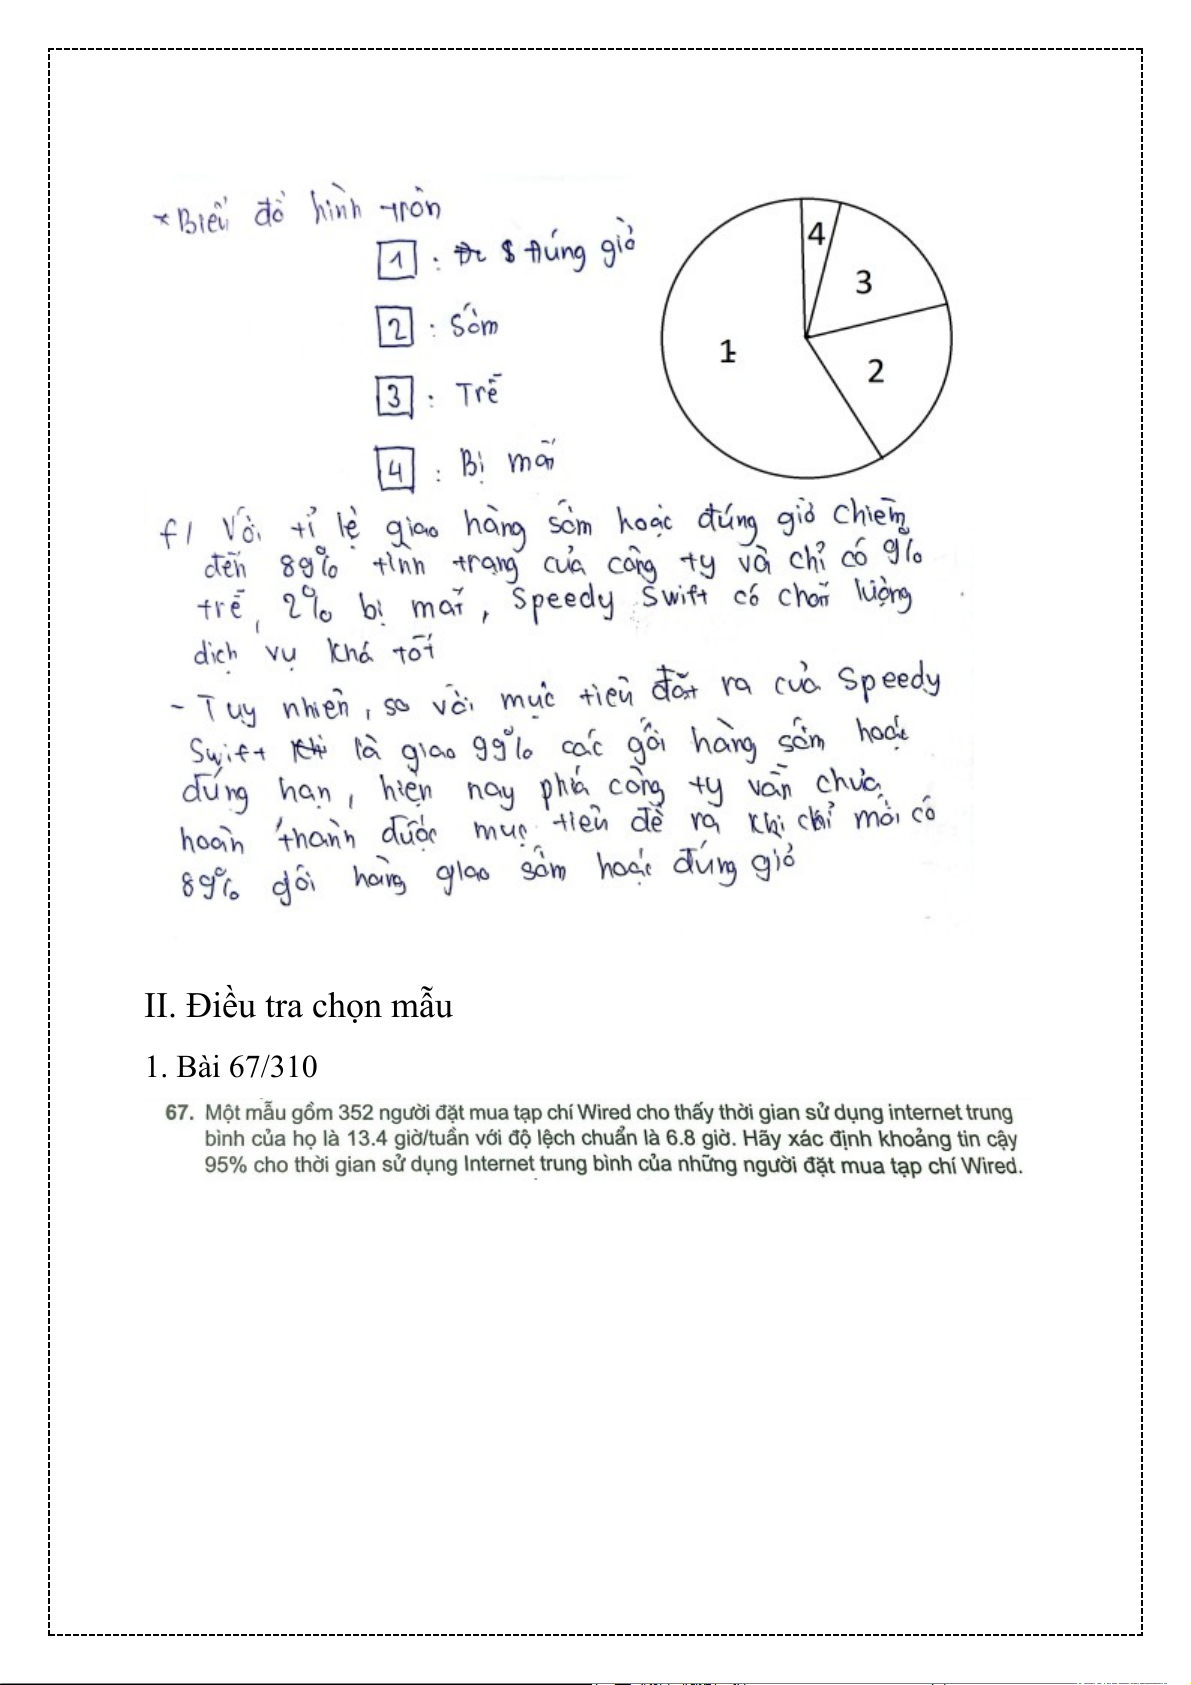 * Biểu đồ hình tròn
1 : Đúng giờ
2 : Sớm
3 : Trễ
4 : Bị mất
4
3
1
2
f/ Với tỉ lệ giao hàng sớm hoặc đúng giờ chiếm
đến 89% tình trạng của công ty và chỉ có 9%
trễ, 2% bị mất, Speedy Swift có chất lượng
dịch vụ khá tốt
- Tuy nhiên, so với mục tiêu đặt ra của Speedy
Swift là giao 99% các gói hàng sớm hoặc
đúng hạn, hiện nay phía công ty vẫn chưa
hoàn thành được mục tiêu đề ra khi chỉ mới có
89% gói hàng giao sớm hoặc đúng giờ
II. Điều tra chọn mẫu
1. Bài 67/310
67. Một mẫu gồm 352 người đặt mua tạp chí Wired cho thấy thời gian sử dụng internet trung
bình của họ là 13.4 giờ/tuần với độ lệch chuẩn là 6.8 giờ. Hãy xác định khoảng tin cậy
95% cho thời gian sử dụng Internet trung bình của những người đặt mua tạp chí Wired.